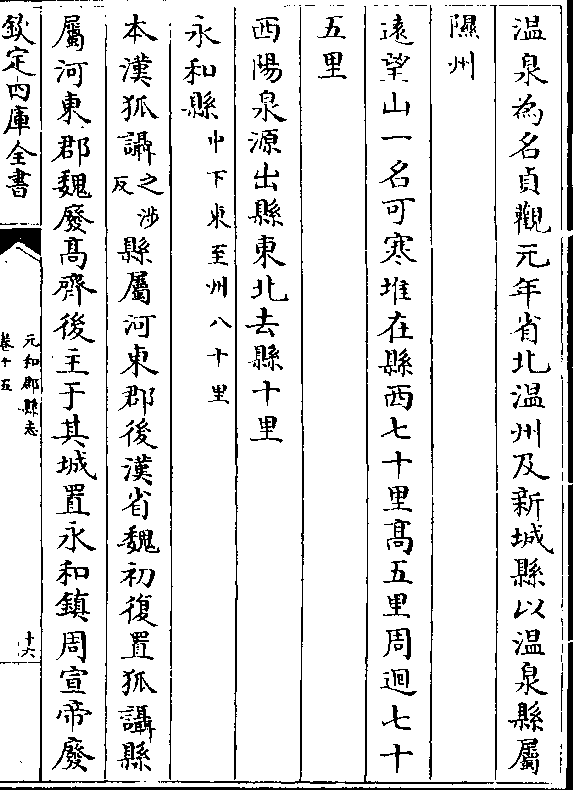 温泉為名貞觀元年省北温州及新城縣以温泉縣屬
隰州
逺望山一名可寒堆在縣西七十里髙五里周迴七十
五里
西陽泉源出縣東北去縣十里
永和縣中下東至州八十里
本漢狐讘之涉反縣屬河東郡後漢省魏初復置狐讘縣
屬河東郡魏廢髙齊後主于其城置永和鎮周宣帝廢
欽定四庫全書
元和郡縣志
卷十五
十六